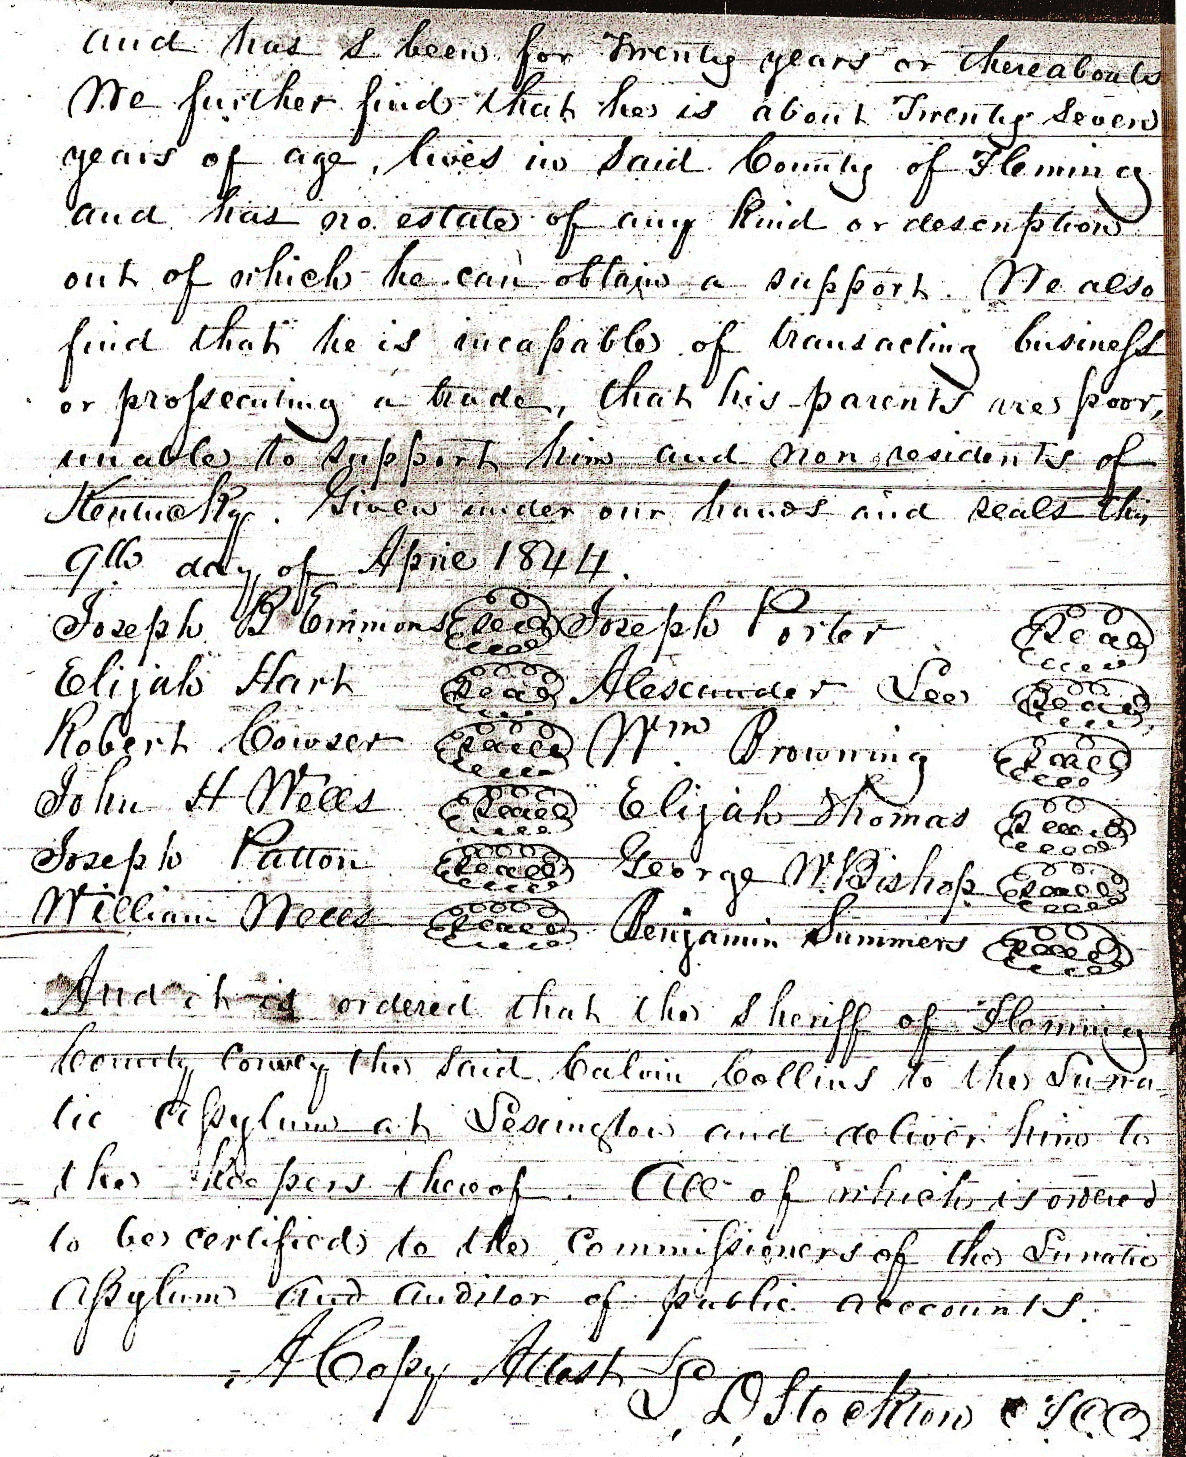 and has s been for Twenty years or thereabouts
We further find that he is about Twenty Seven
years of age, lives in said County of Fleming
and has no estate of any kind or description
out of which he can obtain a support. We also
find that he is incapable of transacting business
or prosecuting a trade, that his parents are poor,
unable to support him and non residents of
Kentucky. Given under our hands and seals this
9th day of April 1844.
Joseph B Emmons Seal Joseph Porter Seal
Elijah Hart Seal Alexander Lee Seal
Robert Cowser Seal Wm Browning Seal
John H Wells Seal Elijah Thomas Seal
Joseph Patton Seal George W. Bishop Seal
William Wells Seal Benjamin Summers Seal
And it is ordered that the Sheriff of Fleming
County Convey the said Calvin Collins to the Luna-
tic Assylum at Lexington and deliver him to
the Keepers thereof. All of which is ordered
to be certified to the Commissioners of the Lunatic
Assylum and Auditor of public accounts.
A Copy Attest
L. D. Stockton C F C C